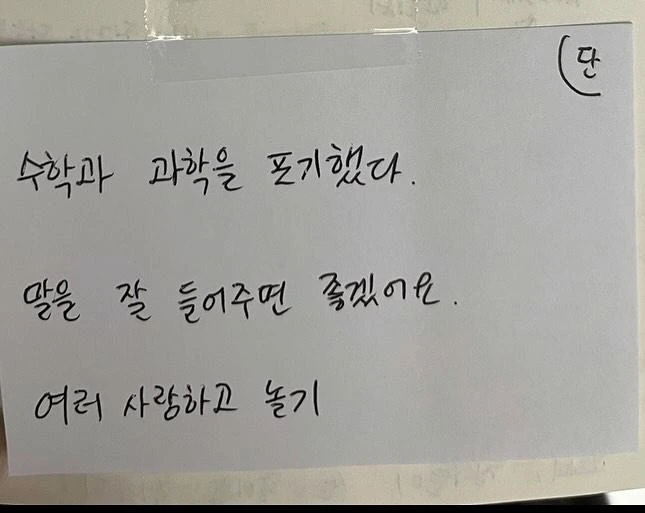 단
수학과 과학을 포기했다.
말을 잘 들어주면 좋겠어요.
여러 사랑하고 놀기